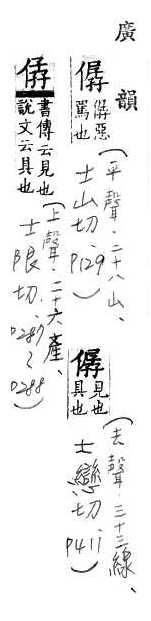 廣韻
僝 僝惡
罵也
(平聲.二十八山、
士山切.P129)
僝 見也
具也
(去聲.三十三線、
士戀切.P411)
僝 書傳云見也
說文云具也
(上聲.二十六產、
士限切.P287~
P288)